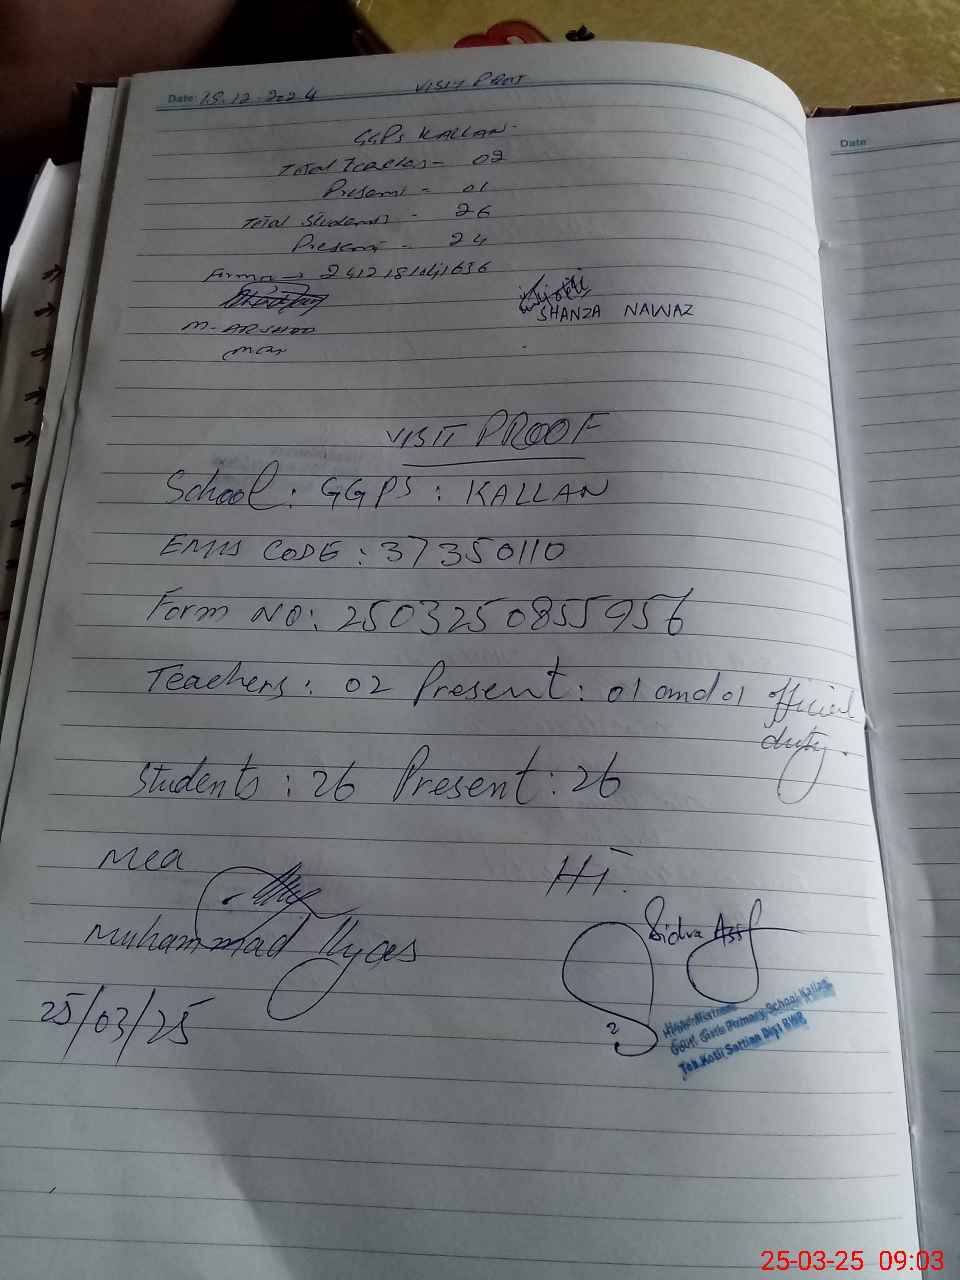 Date: 18.12.2024 VISIT PROOF
GGPS KALLAN
Total Teachers - 02
Present - 01
Total Students - 26
Present - 24
Form no → 
M. ARSHAD
MEA
SHANZA NAWAZ
Date:
VISIT PROOF
School : GGPS : KALLAN
EMIS CODE : 37350110
Form NO: 2503250855956
Teachers : 02 Present : 01 and 01 official
duty.
Students : 26 Present : 26
Mea
HT.
Muhammad Ilyas
Sidra Asif
25/03/25
Head Mistress
Govt. Girls Primary School Kallan
Teh.Kotli Sattian Dist RWP
25-03-25 09:03